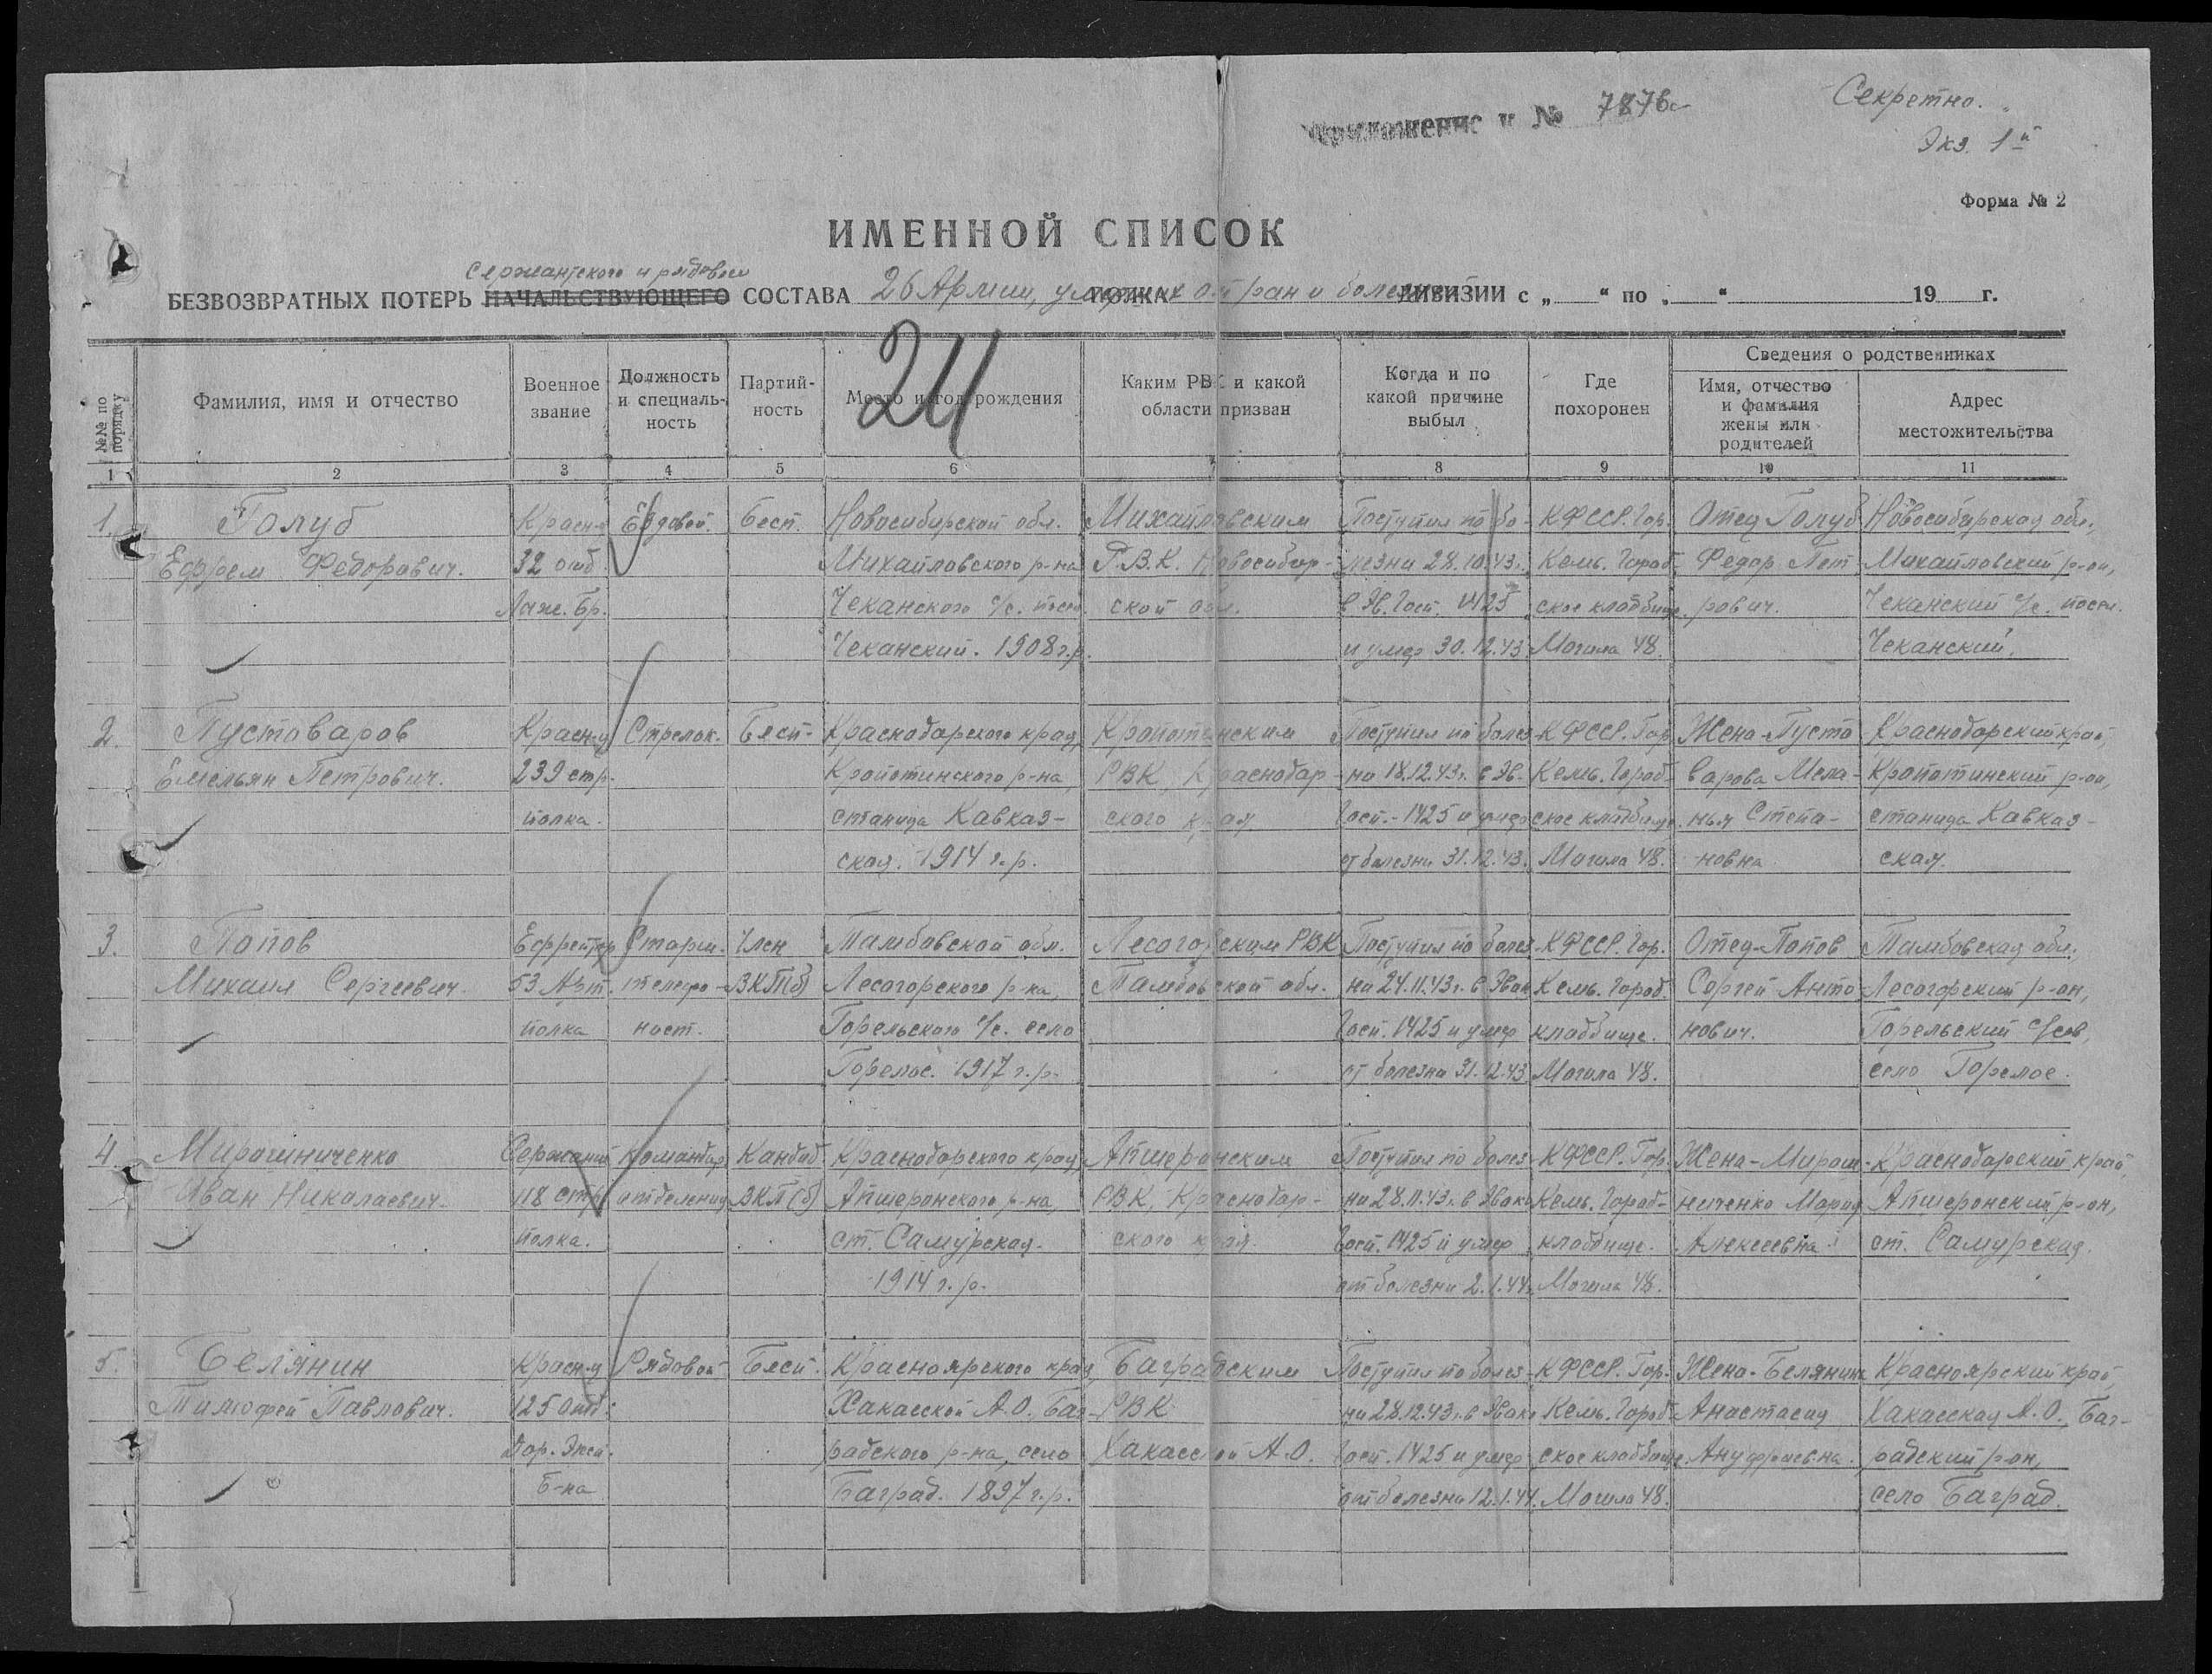 Секретно.
Приложение к № 7876с
Экз. 1й
Форма № 2
ИМЕННОЙ СПИСОК
Сержантского и рядового
БЕЗВОЗВРАТНЫХ ПОТЕРЬ НАЧАЛЬСТВУЮЩЕГО СОСТАВА 26 Армии, умерших от ран и болезней ПОЛКА ДИВИЗИИ с „ “ по „ “ 19 г.
24
№№ по порядку
Фамилия, имя и отчество
Военное звание
Должность и специальность
Партийность
Место и год рождения
Каким РВК и какой области призван
Когда и по какой причине выбыл
Где похоронен
Сведения о родственниках
Имя, отчество и фамилия жены или родителей
Адрес местожительства
1 2 3 4 5 6 8 9 10 11
1. Голуб Красн-ц Ездовой. Бесп. Новосибирской обл. Михайловским Поступил по бо- КФССР. Гор. Отец Голуб Новосибирская обл.,
Ефрем Федорович. 32 отд. Михайловского р-на Р.В.К. Новосибир- лезни 28.10.43г. Кемь. Город- Федор Пет Михайловский р-он,
Лыж. Бр. Чеканского с/с. посел. ской обл. в Эв. Госп. 1425 ское кладбище. рович. Чеканский с/с. посел.
Чеканский. 1908 г.р. и умер 30.12.43 Могила 48. Чеканский.
2. Пустоваров Красн-ц Стрелок. Бесп- Краснодарского края, Кропотинским Поступил по болез- КФССР. Гор. Жена-Пусто Краснодарский край,
Емельян Петрович. 239 стр. Кропотинского р-на, РВК, Краснодар- ни 18.12.43г. в Эв- Кемь. Город- варова Мела- Кропотинский р-он,
полка. станица Кавказ- ского края Госп.-1425 и умер ское кладбище. нья Степа- станица Кавказ-
ская. 1914 г.р. от болезни 31.12.43. Могила 48. новна ская.
3. Попов Ефрейтор Старш. Член Тамбовской обл. Лесогорским РВК Поступил по болез- КФССР. Гор. Отец-Попов Тамбовская обл.
Михаил Сергеевич. 53 Арт. телефо- ВКП(б) Лесогорского р-на, Тамбовской обл. ни 24.11.43г. в Эвак Кемь. Город. Сергей Анто- Лесогорский р-он,
полка нист. Горельского с/с. село Госп. 1425 и умер кладбище. нович. Горельский с/сов,
Горелое. 1917 г.р. от болезни 31.12.43 Могила 48. село Горелое.
4. Мирошниченко Сержант Командир Кандид. Краснодарского края, Апшеронским Поступил по болез- КФССР. Гор. Жена-Мирош- Краснодарский край,
Иван Николаевич. 118 стр. отделения ВКП(б) Апшеронского р-на, РВК, Краснодар- ни 28.11.43г. в Эвак Кемь. Город- ниченко Мария Апшеронский р-он,
полка. ст. Самурская. ского края. Госп. 1425 и умер кладбище. Алексеевна ст. Самурская.
1914 г.р. от болезни 2.1.44г. Могила 48.
5. Белянин Красн-ц Рядовой Бесп. Красноярского края, Баградским Поступил по болез- КФССР. Гор- Жена-Белянина Красноярский край,
Тимофей Павлович. 125 Отд. Хакасской А.О. Баг- РВК ни 28.12.43г. в Эвак Кемь. Город- Анастасия Хакасская А.О., Баг-
Дор. Эксп. радского р-на, село Хакасской А.О. Госп. 1425 и умер ское кладбище. Ануфриевна. радский р-он,
Б-на Баград. 1897 г.р. от болезни 12.1.44. Могила 48. село Баград.